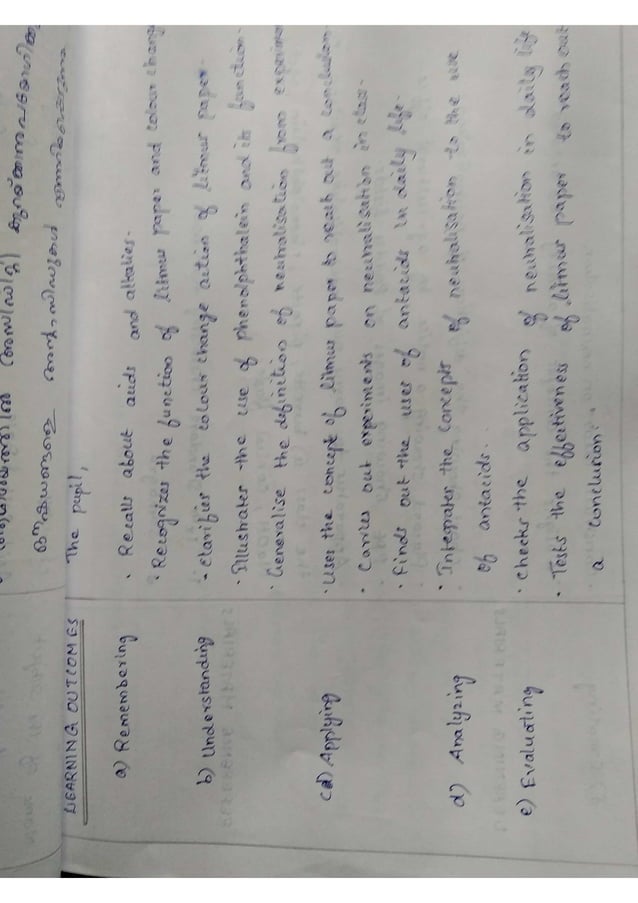 ഔഷധങ്ങളെ
LEARNING OUTCOMES
The pupil,
a) Remembering
· Recalls about acids and alkalies.
· Recognizes the function of litmus paper and colour change
b) Understanding
· Clarifies the colour change action of litmus paper.
· Illustrates the use of phenolphthalein and its function.
· Generalise the definition of neutralisation from
c) Applying
· Uses the concept of litmus paper to reach out a conclusion
· Carries out experiments on neutralisation in class.
· Finds out the uses of antacids in daily life.
d) Analyzing
· Integrates the concepts of neutralisation to the use
of antacids..
e) Evaluating
· Checks the application of neutralisation in daily life
· Tests the effectiveness of litmus paper to reach out
a conclusion.